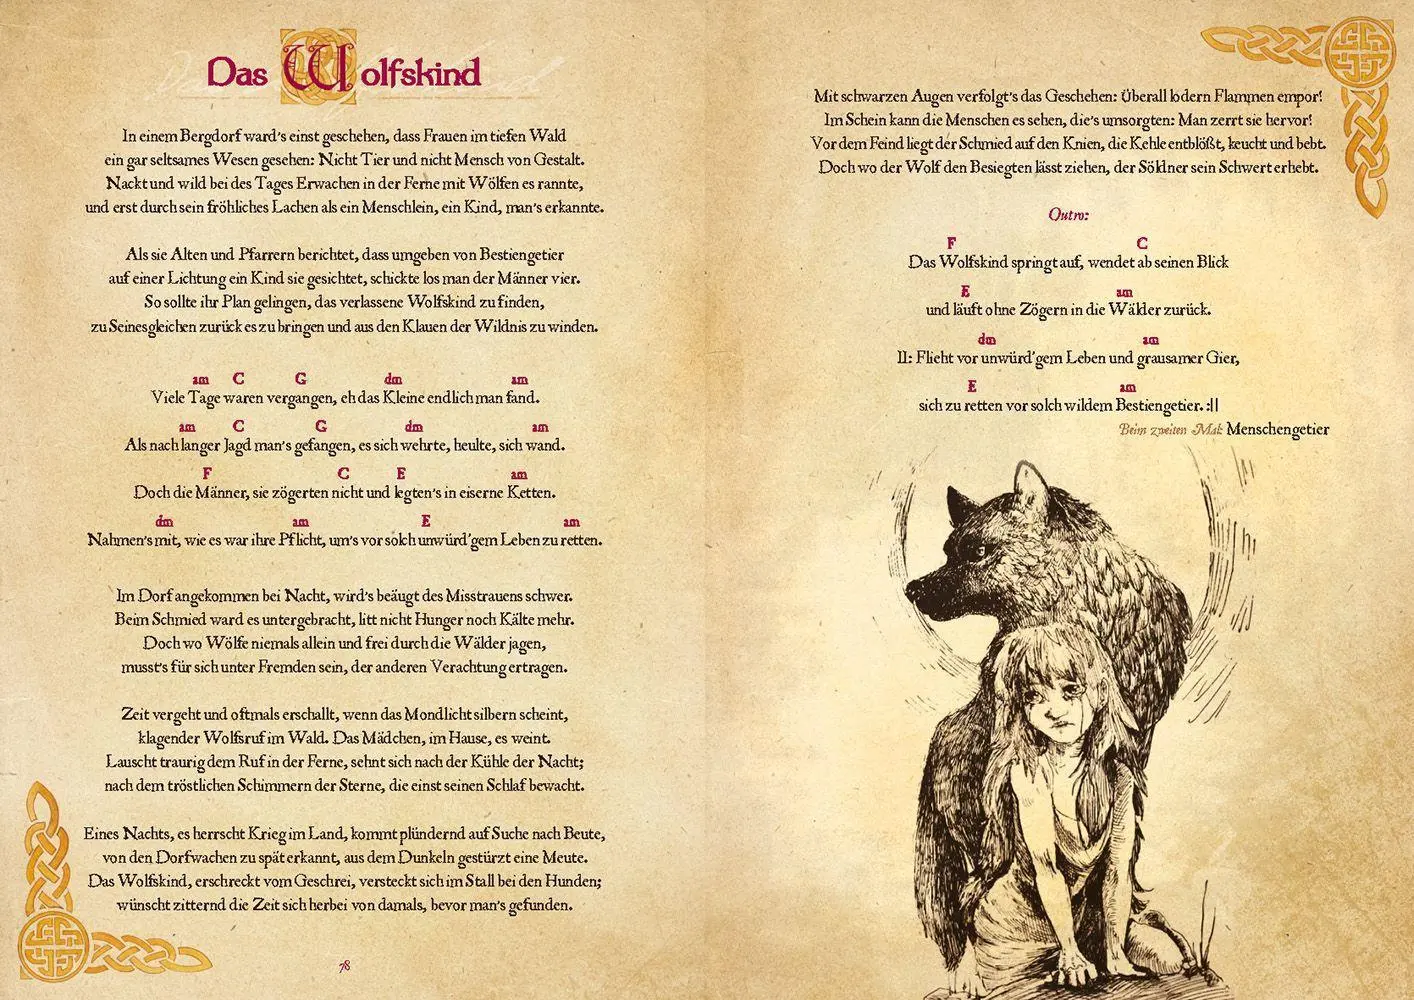 Das Wolfskind
In einem Bergdorf ward's einst geschehen, dass Frauen im tiefen Wald
ein gar seltsames Wesen gesehen: Nicht Tier und nicht Mensch von Gestalt.
Nackt und wild bei des Tages Erwachen in der Ferne mit Wölfen es rannte,
und erst durch sein fröhliches Lachen als ein Menschlein, ein Kind, man's erkannte.
Als sie Alten und Pfarrern berichtet, dass umgeben von Bestiengetier
auf einer Lichtung ein Kind sie gesichtet, schickte los man der Männer vier.
So sollte ihr Plan gelingen, das verlassene Wolfskind zu finden,
zu Seinesgleichen zurück es zu bringen und aus den Klauen der Wildnis zu winden.
am C G dm am
Viele Tage waren vergangen, eh das Kleine endlich man fand.
am C G dm am
Als nach langer Jagd man's gefangen, es sich wehrte, heulte, sich wand.
F C E am
Doch die Männer, sie zögerten nicht und legten's in eiserne Ketten.
dm am E am
Nahmen's mit, wie es war ihre Pflicht, um's vor solch unwürd'gem Leben zu retten.
Im Dorf angekommen bei Nacht, wird's beäugt des Misstrauens schwer.
Beim Schmied ward es untergebracht, litt nicht Hunger noch Kälte mehr.
Doch wo Wölfe niemals allein und frei durch die Wälder jagen,
musst's für sich unter Fremden sein, der anderen Verachtung ertragen.
Zeit vergeht und oftmals erschallt, wenn das Mondlicht silbern scheint,
klagender Wolfsruf im Wald. Das Mädchen, im Hause, es weint.
Lauscht traurig dem Ruf in der Ferne, sehnt sich nach der Kühle der Nacht;
nach dem tröstlichen Schimmern der Sterne, die einst seinen Schlaf bewacht.
Eines Nachts, es herrscht Krieg im Land, kommt plündernd auf Suche nach Beute,
von den Dorfwachen zu spät erkannt, aus dem Dunkeln gestürzt eine Meute.
Das Wolfskind, erschreckt vom Geschrei, versteckt sich im Stall bei den Hunden;
wünscht zitternd die Zeit sich herbei von damals, bevor man's gefunden.
78
Mit schwarzen Augen verfolgt's das Geschehen: Überall lodern Flammen empor!
Im Schein kann die Menschen es sehen, die's umsorgten: Man zerrt sie hervor!
Vor dem Feind liegt der Schmied auf den Knien, die Kehle entblößt, keucht und bebt.
Doch wo der Wolf den Besiegten lässt ziehen, der Söldner sein Schwert erhebt.
Outro:
F C
Das Wolfskind springt auf, wendet ab seinen Blick
E am
und läuft ohne Zögern in die Wälder zurück.
dm am
II: Flieht vor unwürd'gem Leben und grausamer Gier,
E am
sich zu retten vor solch wildem Bestiengetier. :||
Beim zweiten Mal: Menschengetier